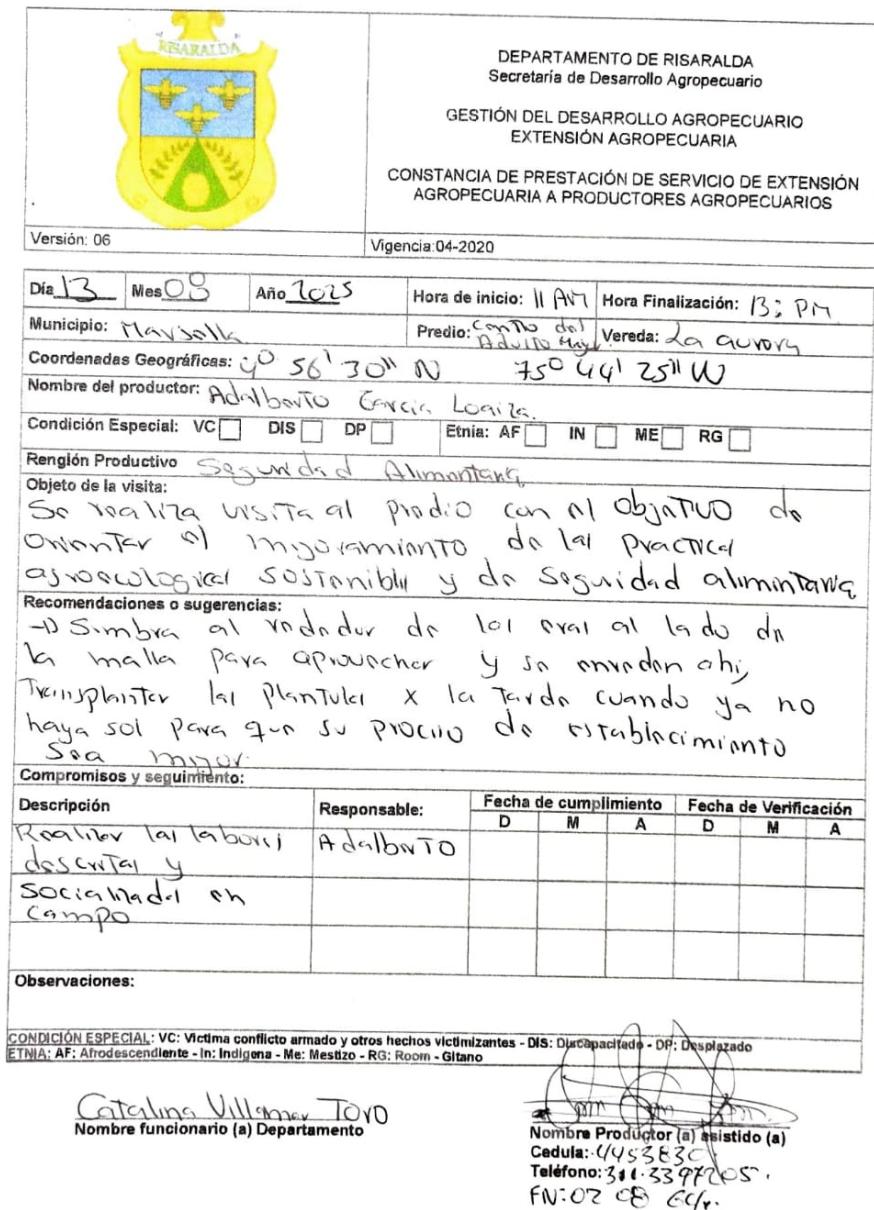 RISARALDA
DEPARTAMENTO DE RISARALDA
Secretaría de Desarrollo Agropecuario
GESTIÓN DEL DESARROLLO AGROPECUARIO
EXTENSIÓN AGROPECUARIA
CONSTANCIA DE PRESTACIÓN DE SERVICIO DE EXTENSIÓN
AGROPECUARIA A PRODUCTORES AGROPECUARIOS
Versión: 06
Vigencia:04-2020
Día 13 Mes 08 Año 2025 Hora de inicio: 11 AM Hora Finalización: 13: PM
Municipio: Marsella Predio: Centro del Adulto May. Vereda: La aurora
Coordenadas Geográficas: 4° 56' 30" N 75° 44' 25" W
Nombre del productor: Adalberto Garcia Loaiza.
Condición Especial: VC DIS DP Etnia: AF IN ME RG
Renglón Productivo Seguridad Alimentaria
Objeto de la visita:
Se realiza visita al predio con el objetivo de
Orientar el mejoramiento de las practicas
agroecologicas sostenibles y de Seguridad alimentaria
Recomendaciones o sugerencias:
Siembra al rededor de las eras al lado de
la malla para aprovechar y se enreden ahi,
Transplantar las Plantulas x la tarde cuando ya no
haya sol para que su proceso de establecimiento
Sea mejor.
Compromisos y seguimiento:
Descripción Responsable: Fecha de cumplimiento Fecha de Verificación
D M A D M A
Realizar las labores Adalberto
descritas y
Socializadas en
campo
Observaciones:
CONDICIÓN ESPECIAL: VC: Victima conflicto armado y otros hechos victimizantes - DIS: Discapacitado - DP: Desplazado
ETNIA: AF: Afrodescendiente - In: Indigena - Me: Mestizo - RG: Room - Gitano
Catalina Villamar Toro
Nombre funcionario (a) Departamento
Nombre Productor (a) asistido (a)
Cedula:
Teléfono:
FN: 02 08